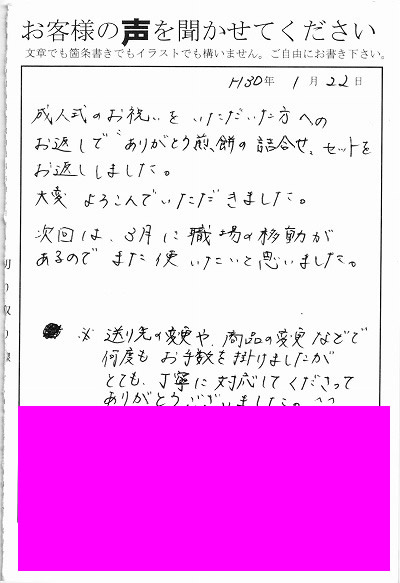 お客様の声を聞かせてください
文章でも箇条書きでもイラストでも構いません。ご自由にお書き下さい。
H30年 1月 22日
成人式のお祝いをいただいた方への
お返しで"ありがとう煎餅の詰合せ"セットを
お返ししました。
大変 よろこんでいただきました。
次回は、3月に職場の移動が
あるので また使いたいと思いました。
※ 送り先の変更や、商品の変更などで
何度も お手数を掛けましたが
とても、丁寧に対応してくださって
ありがとうございました。
切り取り線